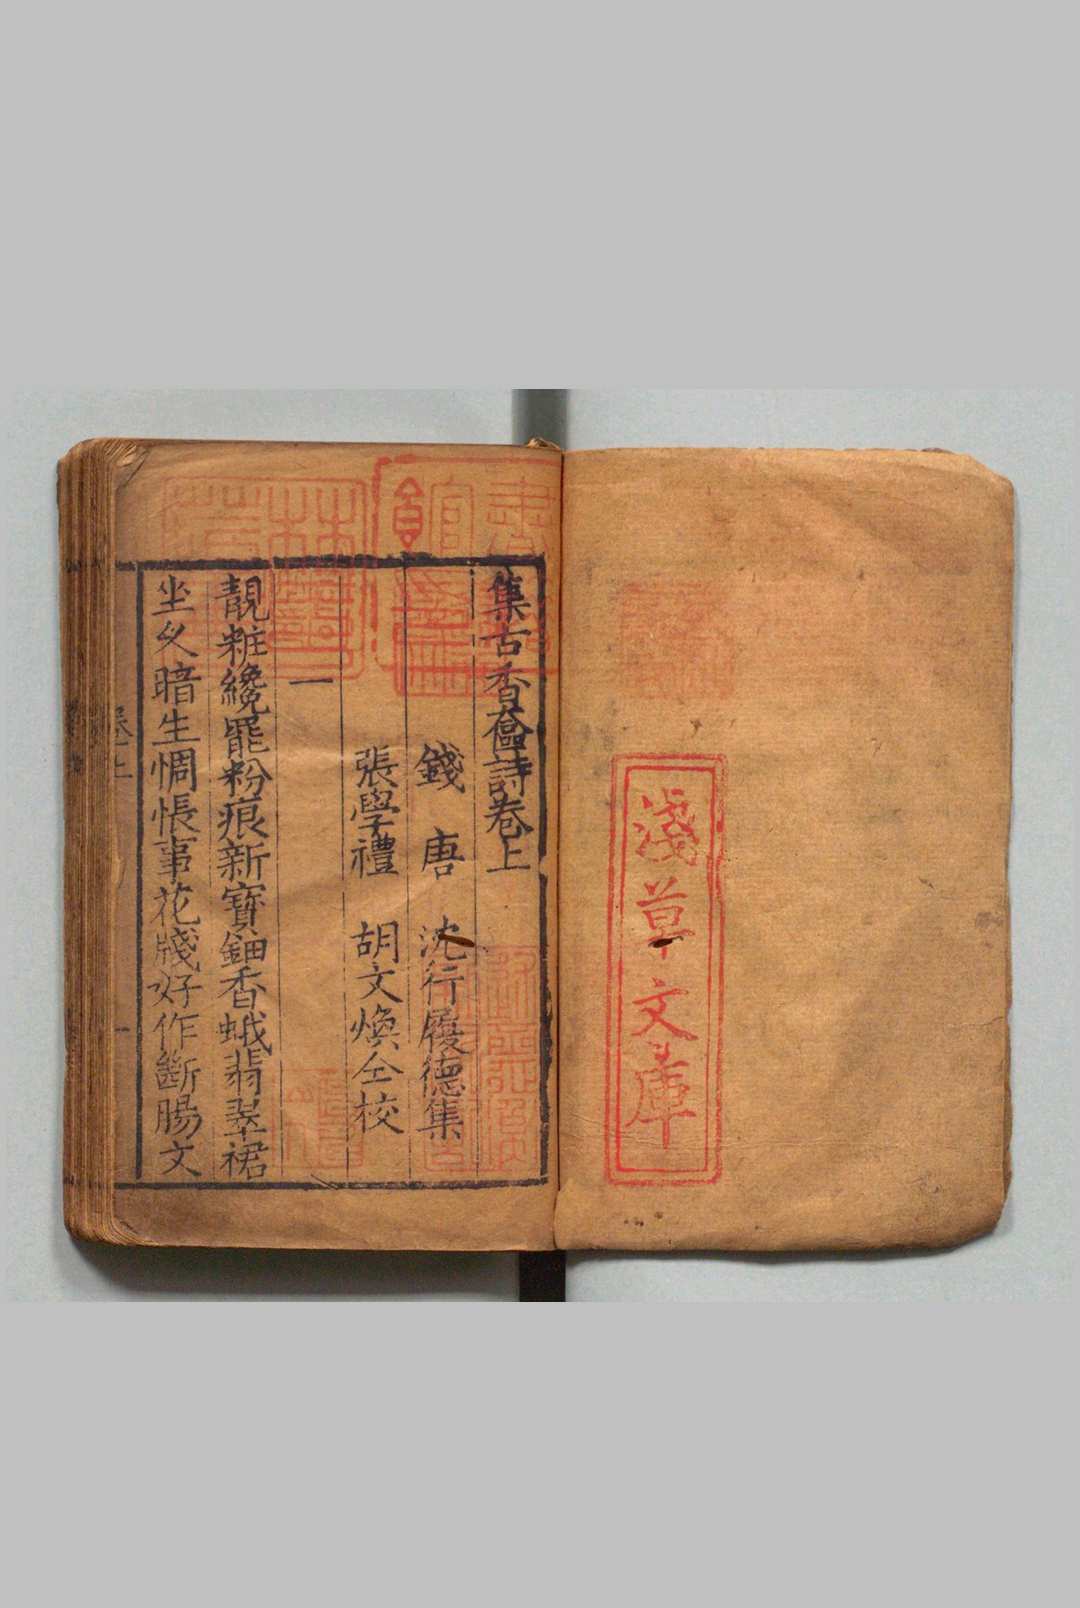 淺草文庫
集古香奩詩卷上
錢唐 沈行履德集
張學禮 胡文煥仝校
一
靚粧纔罷粉痕新寶鈿香蛾翡翠裙
坐乆暗生惆悵事花牋好作斷腸文